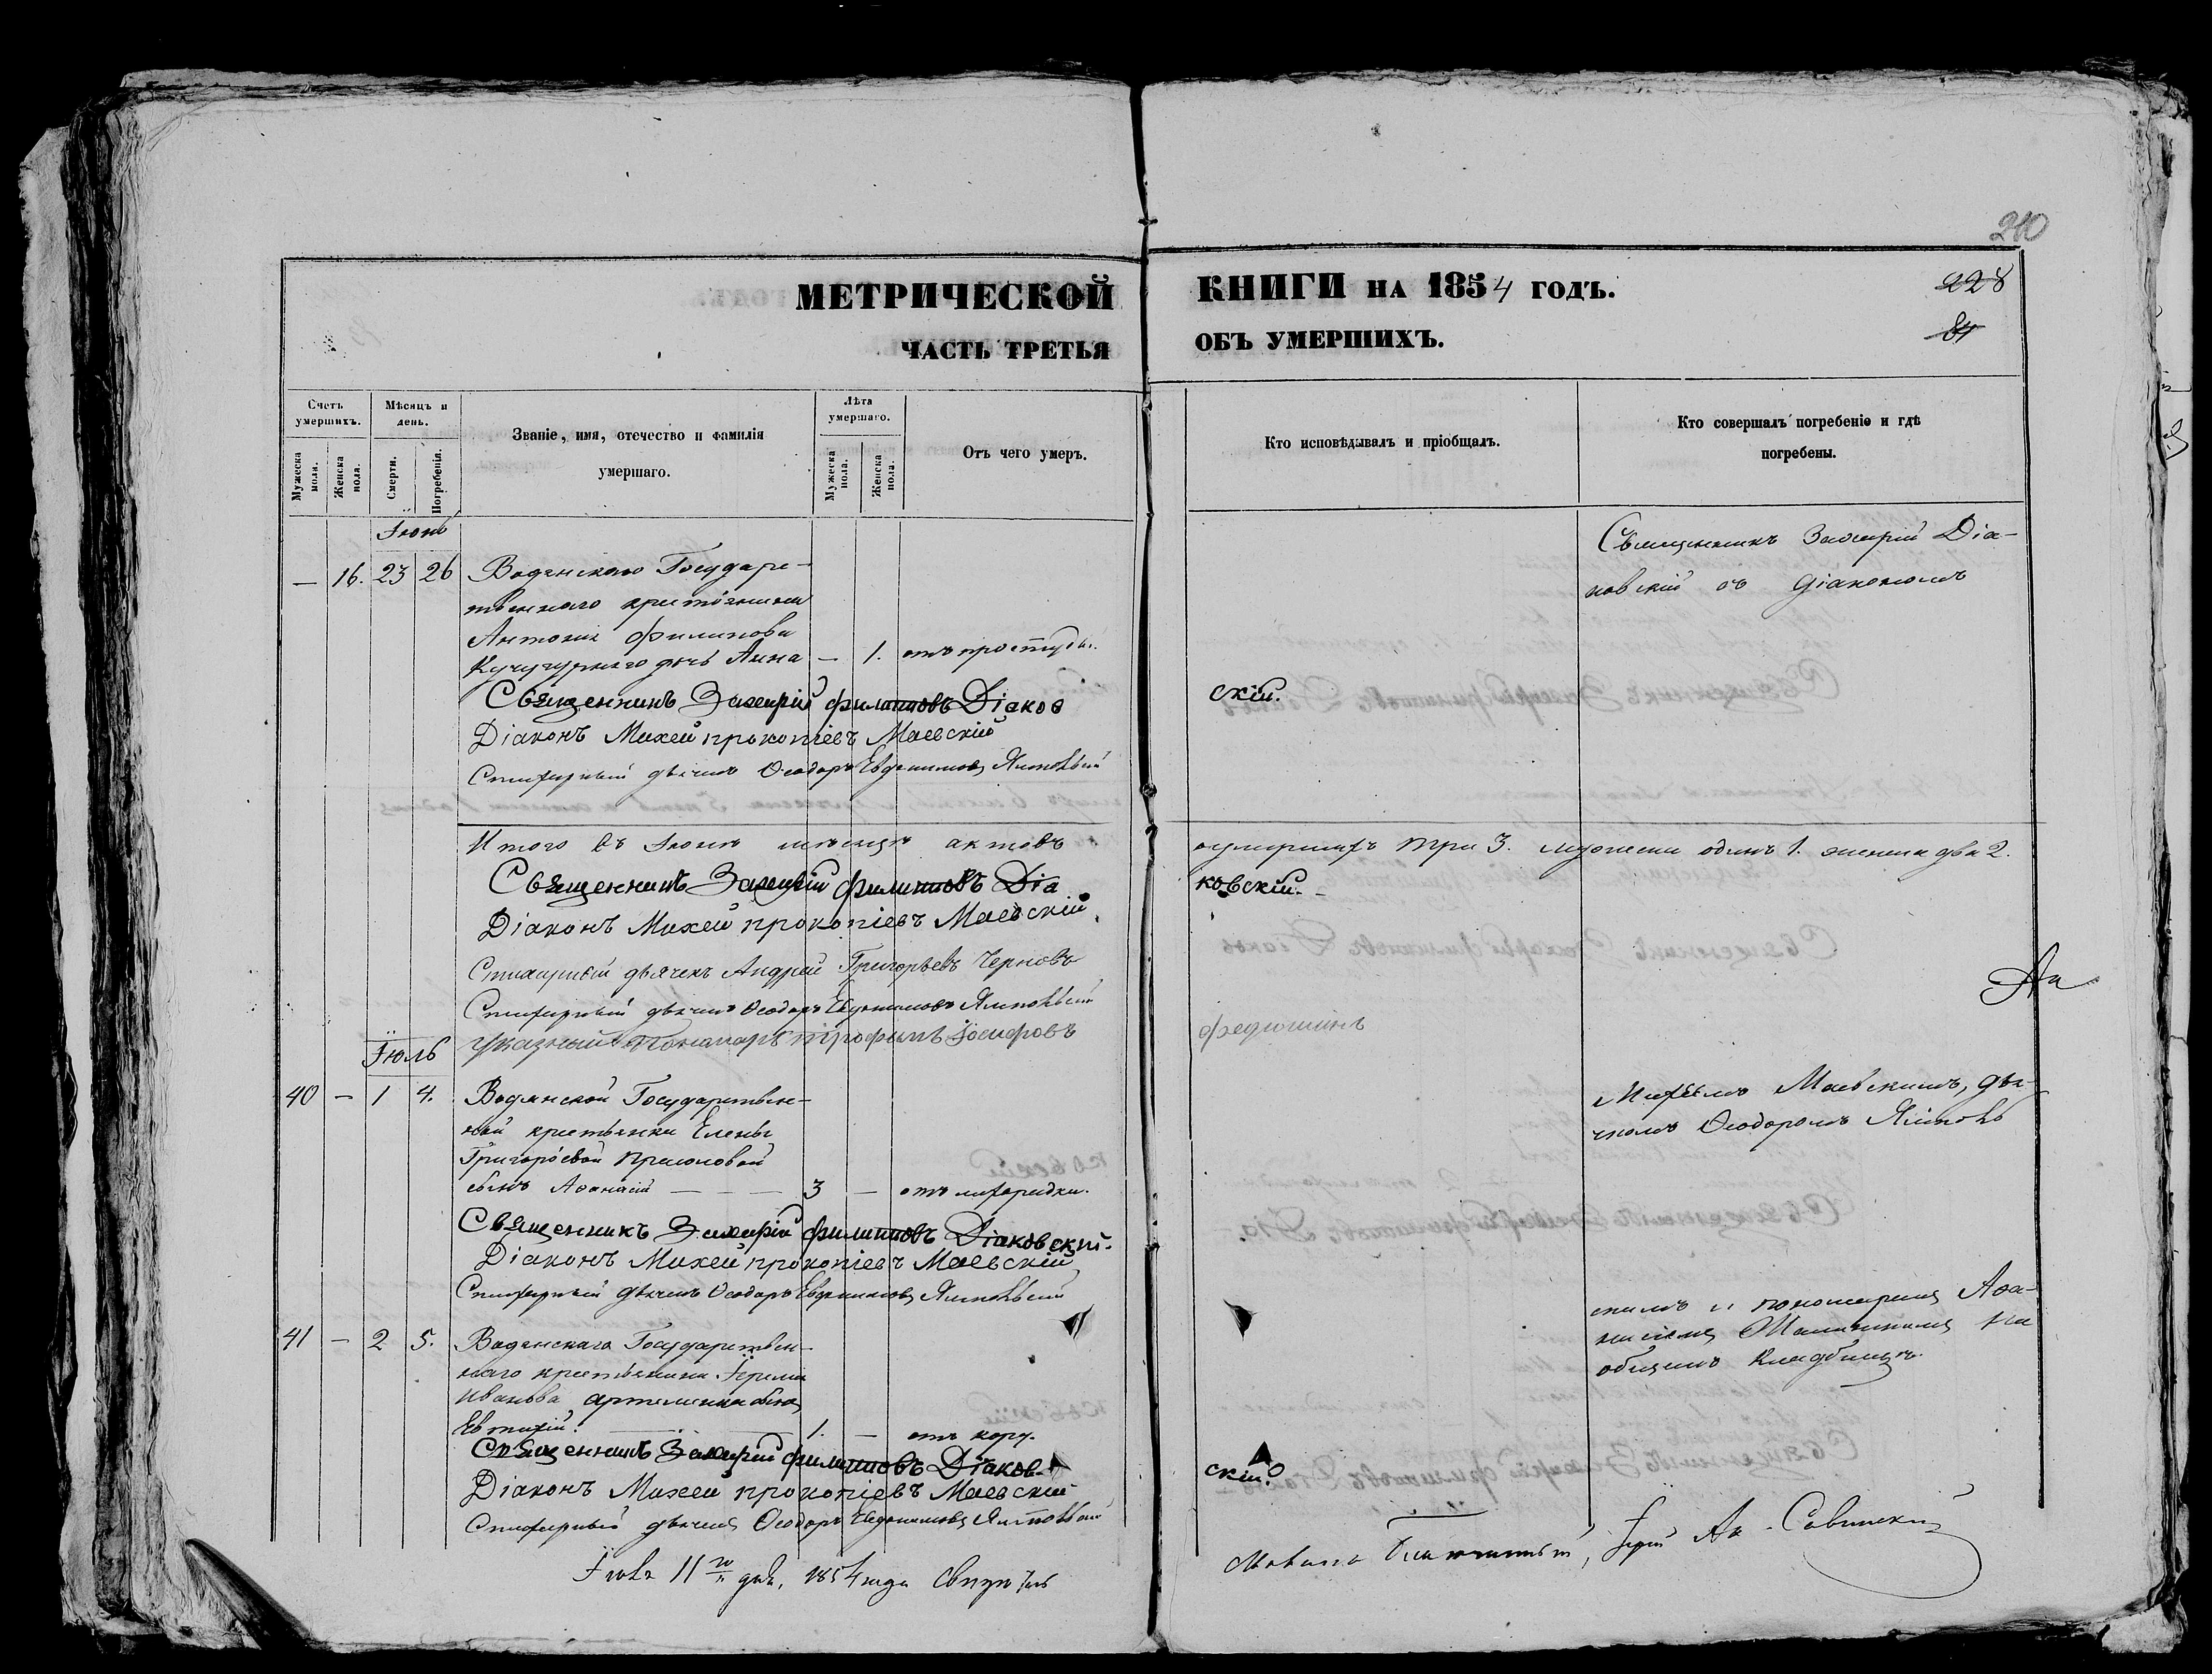 210
МЕТРИЧЕСКОЙ КНИГИ НА 1854 ГОДЪ.
228
84
ЧАСТЬ ТРЕТЬЯ ОБЪ УМЕРШИХЪ.
Счетъ умершихъ.
Мужеска пола.
Женска пола.
Мѣсяцъ и день.
Смерти.
Погребенія.
Званіе, имя, отечество и фамилія
умершаго.
Лѣта умершаго.
Мужеска пола.
Женска пола.
Отъ чего умеръ.
Кто исповѣдывалъ и пріобщалъ.
Кто совершалъ погребеніе и гдѣ
погребены.
Іюнь
— 16. 23 26 Водянскаго Государс-
твеннаго крестьянина
Антонія Филипова
Кучугурнаго дочь Анна — 1. отъ простуды.
Священникъ Захарій Діа-
ковскій съ Діакономъ
Священникъ Захарій филиповъ Діаков
скій.
Діаконъ Михей прокопіевъ Маевскій
Стихарный дьячекъ Ѳеодоръ Евдокимовъ
Итого въ Іюнѣ мѣсяцѣ актовъ умершихъ три 3. мужеска одинъ 1. женска два 2.
Священникъ Захарій филиповъ Діа
ковскій.
Діаконъ Михей прокопіевъ Маевскій
Стихарный дьячекъ Андрей Григорьевъ Черновъ
Стихарный дьячекъ Ѳеодоръ Евдокимовъ
Указный Пономарь трофимъ Іосифовъ
федюшинъ
Іюль
40 — 1 4. Водянской Государствен-
ной крестьянки Елены
Григорьевой
сынъ Аѳанасій — — — 3 — отъ лихорадки.
Михѣемъ Маевскимъ, дья-
чкомъ Ѳеодоромъ
Священникъ Захарій филиповъ Діаковскій.
Діаконъ Михей прокопіевъ Маевскій
Стихарный дьячекъ Ѳеодоръ Евдокимовъ
41 — 2 5. Водянскаго Государствен-
наго крестьянина
Иванова Артеменка сынъ
Евтихій. 1. — отъ кору.
скимъ и пономаремъ Аѳа-
насіемъ на
общемъ кладбищѣ.
Священникъ Захарій филиповъ Діаков-
скій.
Діаконъ Михей прокопіевъ Маевскій
Стихарный дьячекъ Ѳеодоръ Евдокимовъ
Іюля 11 дня, 1854 года
Благочинный, Іерей Савинскій